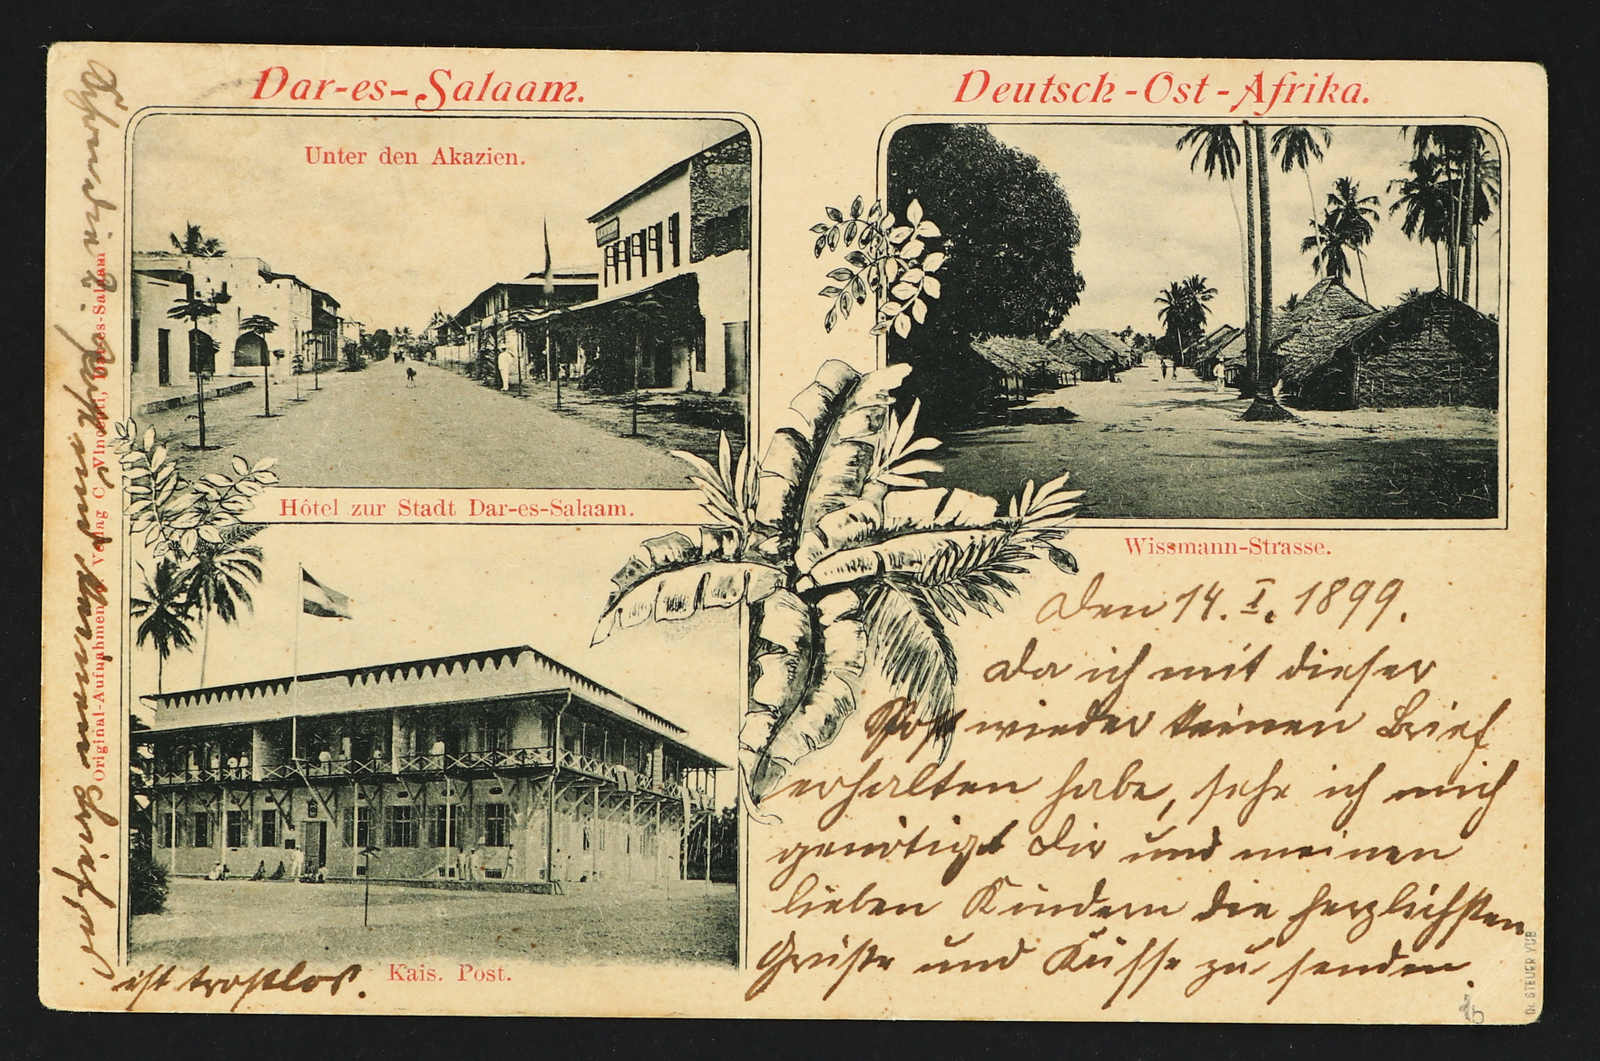 Dar-es-Salaam.
Deutsch-Ost-Afrika.
Unter den Akazien.
Hôtel zur Stadt Dar-es-Salaam.
Wissmann-Strasse.
Kais. Post.
Original-Aufnahmen Verlag C. Vincenti, Dar-es-Salaam
Den 14. I. 1899.
Da ich mit dieser
Post wieder keinen Brief
erhalten habe, sehe ich mich
genötigt Dir und meinen
lieben Kindern die herzlichsten
Grüße und Küsse zu senden.
ist trostlos.
Dr. STEUER VÖB